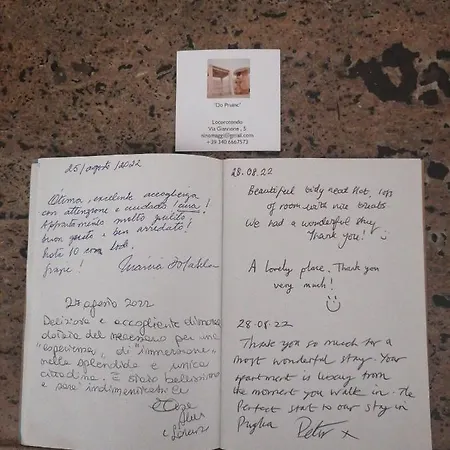 "Do Pruinc"
Locorotondo
Via Giannone , 5
+ 39 340 6667573
25/agosto/2022
Otima, excelente accoglienza
con attenzione e cuidado (cura)!
Appartamento molto pulito,
buon gusto e ben arredato!
nota 10 com
27 agosto 2022
Deliziosa e accogliente dimora
dotata del necessario per una
"esperienza" di "immersione"
nella splendida e unica
cittadina. È stato bellissimo
e sarà indimenticabile
28.08.22
Beautiful
of room with nice treats.
We had a wonderful stay
Thank you!
A lovely place. Thank you
very much!
28.08.22
Thank you so much for a
most wonderful stay. Your
apartment is luxury from
the moment you walk in. The
Perfect start to our stay in
Puglia
Peter x